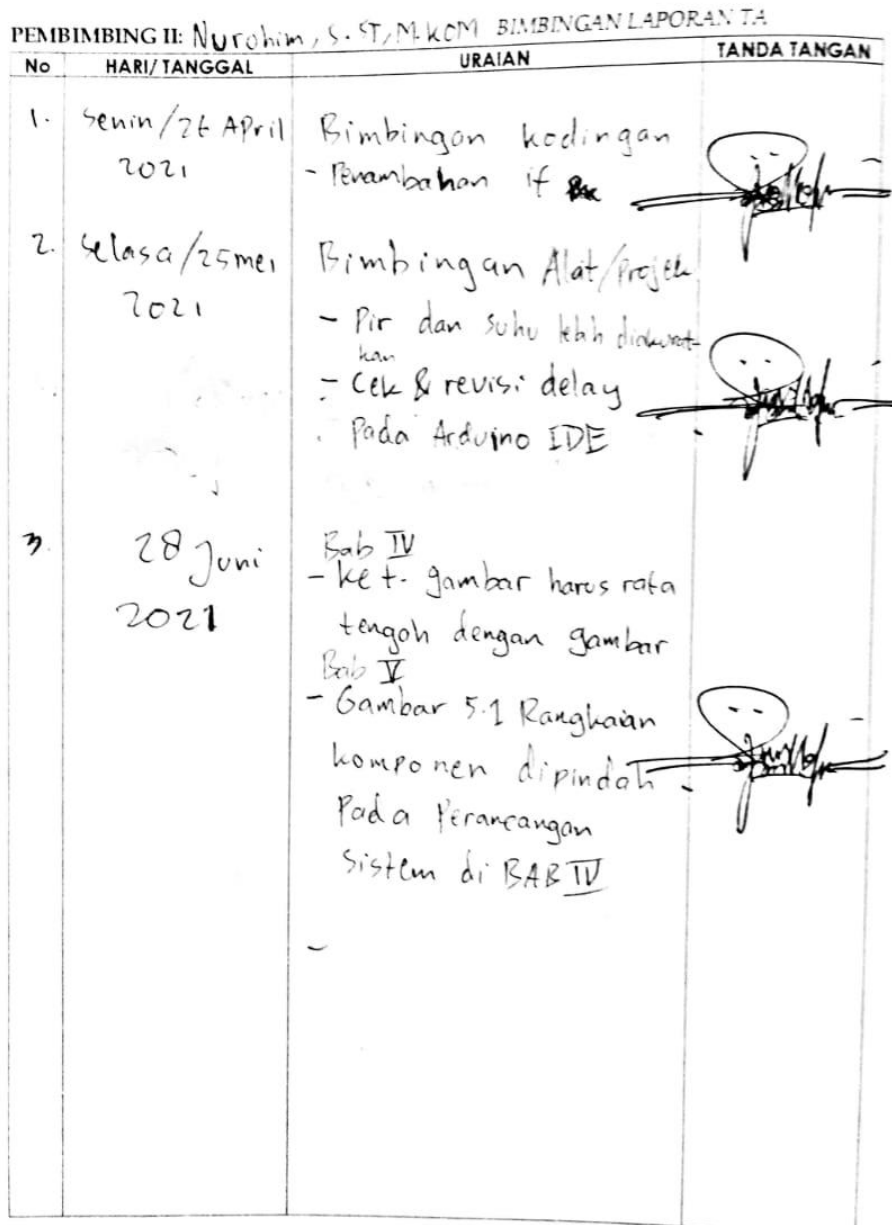 PEMBIMBING II: Nurohim, S.ST, M.KOM BIMBINGAN LAPORAN TA
No HARI/TANGGAL URAIAN TANDA TANGAN
1. Senin/26 April Bimbingan kodingan
2021 - Penambahan if
2. Selasa/25 mei Bimbingan Alat/Projek
2021 - Pir dan suhu lebih diakurat-
kan
- Cek & revisi delay
Pada Arduino IDE
3. 28 Juni Bab IV
- Ket. gambar harus rata
2021 tengah dengan gambar
Bab V
- Gambar 5.1 Rangkaian
komponen dipindah
Pada Perancangan
Sistem di BAB IV
-